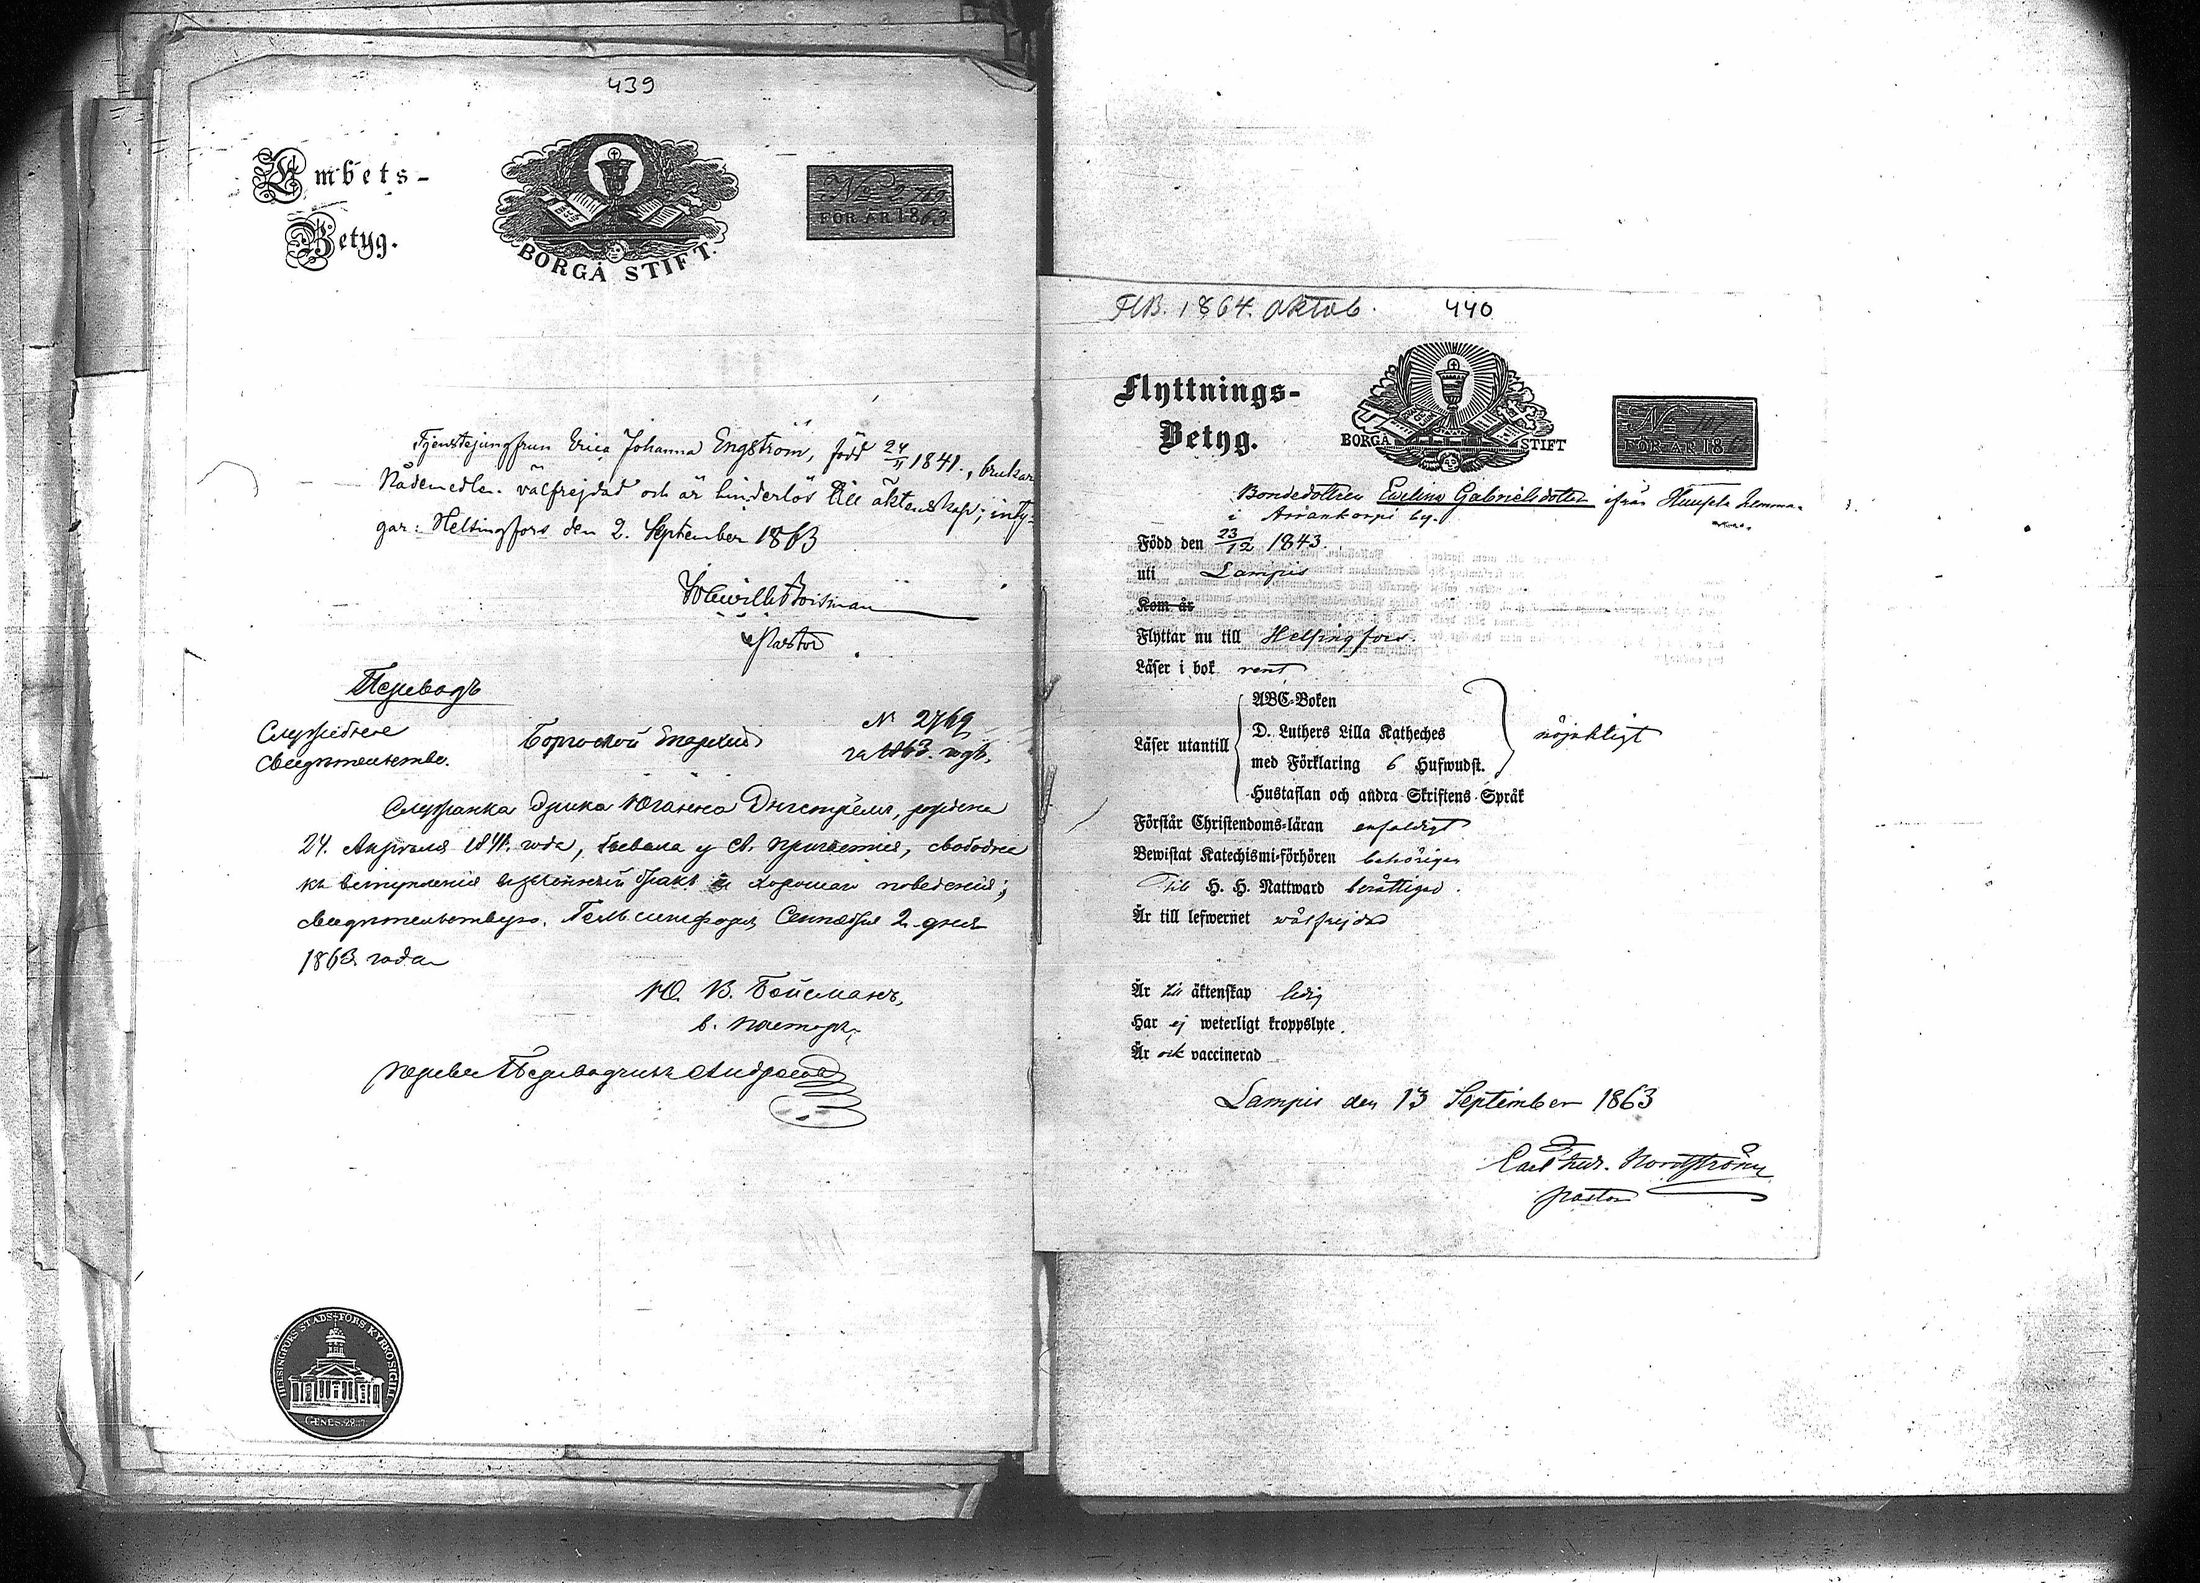 439
Embets-
Betyg.
BORGÅ STIFT.
No 2769
FÖR ÅR 1863
Tjenstejungfrun Erica Johanna Engström, född 24/11 1841, brukar
Nådemedlen. välfrejdad och är hinderlös till äktenskap; inty-
gar: Helsingfors den 2. September 1863
Boisman
Pastor
Переводъ
Служебное
свидѣтельство.
Боргоской Епархіи
N 2769
за 1863. годъ.
Служанка Эрика Юганна Энгстремъ, рождена
24. Апрѣля 1841. года, бывала у Св. причастія, свободна
къ вступленію въ законный бракъ и хорошаго поведенія;
свидѣтельствую. Гельсингфорсъ Сентября 2. дня
1863. года
Ю. В. Бойсманъ,
в. пасторъ;
HELSINGFORS STADS-FÖRS KYRKO SIGILL
GENES. 28:17.
FHB. 1864. Oktob.
440
Flyttnings-
Betyg.
BORGÅ STIFT
No 107
FÖR ÅR 186
Bondedottren Evelina Gabrielsdotter ifrån
i Arrankorpi by.
Född den 23/12 1843.
uti Lampis
Kom år
Flyttar nu till Helsingfors.
Läser i bok rent
ABC-Boken
D. Luthers Lilla Katheches
Läser utantill
nöjaktigt
med Förklaring 6 Hufwudst.
Hustaflan och andra Skriftens Språk
Förstår Christendoms-läran enfaldigt
Bewistat Katechismi-förhören behörigen
Till H. H. Nattward berättigad.
Är till lefwernet välfrejdad
Är till äktenskap ledig
Har ej weterligt kroppslyte.
Är ock vaccinerad
Lampis den 13 September 1863
Carl Fred. Nordström
pastor